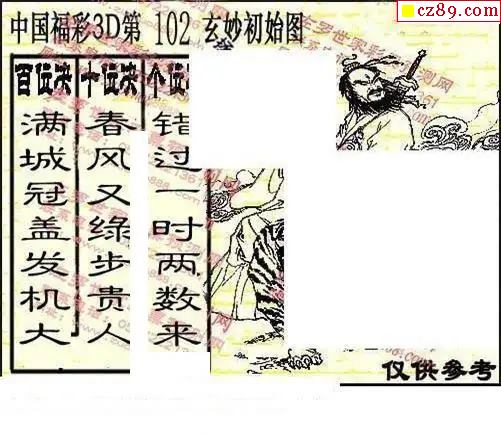 cz89.com
中国福彩3D第 102 玄妙初始图
百位决 十位决 个位
满城冠盖发机大
春风又绿步贵人
错过一时两数来
仅供参考